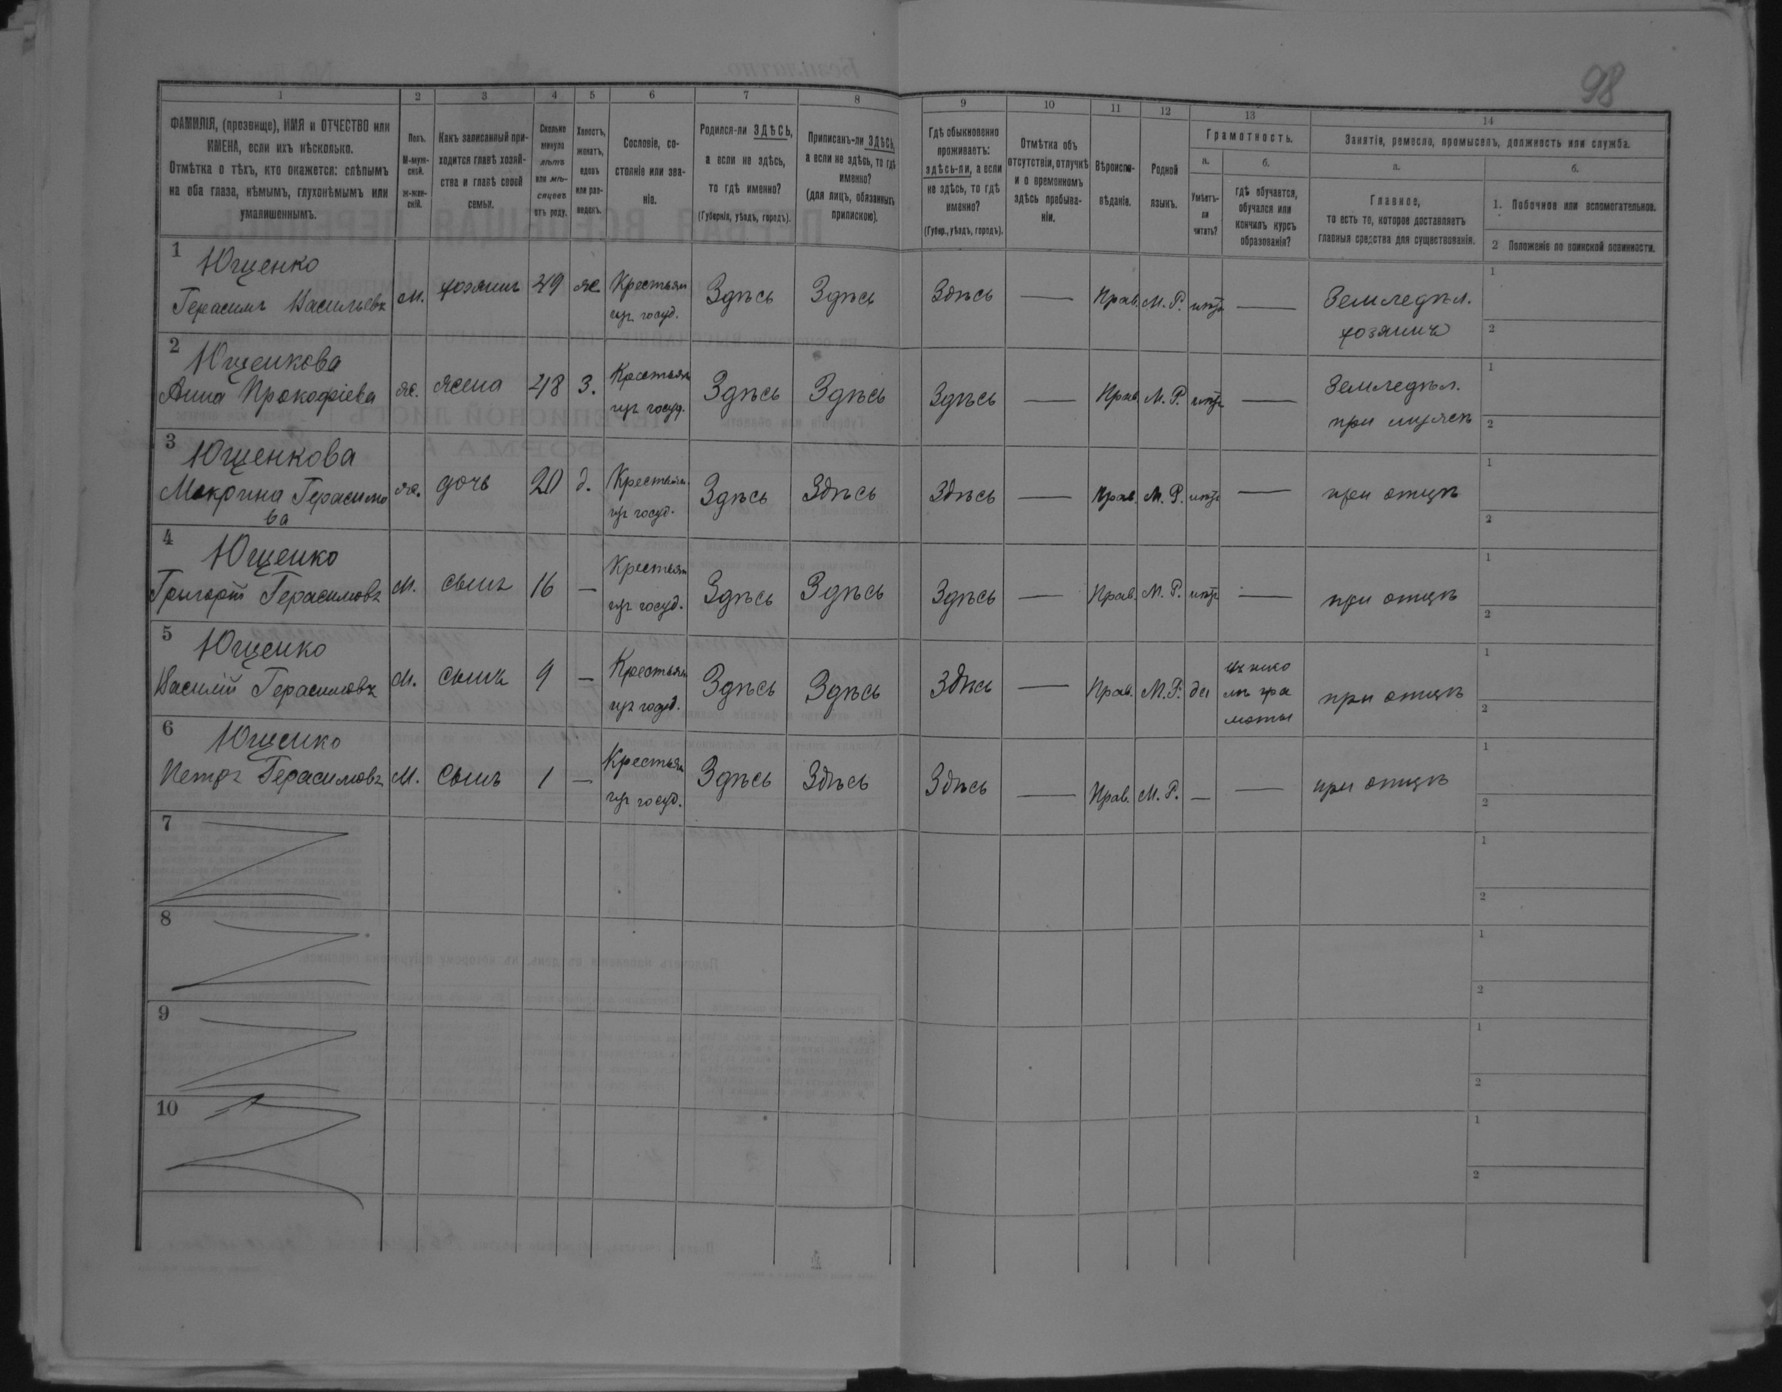 98
1 2 3 4 5 6 7 8 9 10 11 12 13 14
ФАМИЛІЯ, (прозвище), ИМЯ и ОТЧЕСТВО или
ИМЕНА, если ихъ нѣсколько.
Отмѣтка о тѣхъ, кто окажется: слѣпымъ
на оба глаза, нѣмымъ, глухонѣмымъ или
умалишеннымъ.
Полъ.
М-муж-
ской.
Ж-жен-
скій.
Какъ записанный при-
ходится главѣ хозяй-
ства и главѣ своей
семьи.
Сколько
минуло
лѣтъ
или мѣ-
сяцевъ
отъ роду.
Холостъ,
женатъ,
вдовъ
или раз-
веденъ.
Сословіе, со-
стояніе или зва-
ніе.
Родился-ли ЗДѢСЬ,
а если не здѣсь,
то гдѣ именно?
(Губернія, уѣздъ, городъ).
Приписанъ-ли ЗДѢСЬ,
а если не здѣсь, то гдѣ
именно?
(для лицъ, обязанныхъ
припискою).
Гдѣ обыкновенно
проживаетъ:
здѣсь-ли, а если
не здѣсь, то гдѣ
именно?
(Губер., уѣздъ, городъ).
Отмѣтка объ
отсутствіи, отлучкѣ
и о временномъ
здѣсь пребыва-
ніи.
Вѣроиспо-
вѣданіе.
Родной
языкъ.
Грамотность.
а.
Умѣетъ-
ли
читать?
б.
гдѣ обучается,
обучался или
кончилъ курсъ
образованія?
Занятія, ремесло, промыселъ, должность или служба.
а.
Главное,
то есть то, которое доставляетъ
главныя средства для существованія.
б.
1. Побочное или вспомогательное.
2 Положеніе по воинской повинности.
1 Ющенко
Герасимъ Васильевъ м. хозяинъ 49 ж Крестьян Здѣсь Здѣсь Здѣсь — Прав. М. Р. нѣтъ — Земледѣл. 1
из госуд. хозяинъ 2
2 Ющенкова
Анна Прокофіева ж. жена 48 З. Крестьян Здѣсь Здѣсь Здѣсь — Прав. М. Р. нѣтъ — Земледѣл. 1
из госуд. при мужѣ 2
3 Ющенкова
Макрина Герасимо ж. дочь 20 д. Крестьян Здѣсь Здѣсь Здѣсь — Прав. М. Р. нѣтъ — при отцѣ 1
ва из госуд. 2
4 Ющенко
Григорій Герасимовъ М. сынъ 16 — Крестьян Здѣсь Здѣсь Здѣсь — Прав. М. Р. нѣтъ — при отцѣ 1
из госуд. 2
5 Ющенко
Василій Герасимовъ М. сынъ 9 — Крестьян Здѣсь Здѣсь Здѣсь — Прав. М. Р. да въ шко при отцѣ 1
из госуд. лѣ гра 2
моты
6 Ющенко
Петръ Герасимовъ М. сынъ 1 — Крестьян Здѣсь Здѣсь Здѣсь — Прав. М. Р. — — при отцѣ 1
из госуд. 2
7 1
2
8 1
2
9 1
2
10 1
2